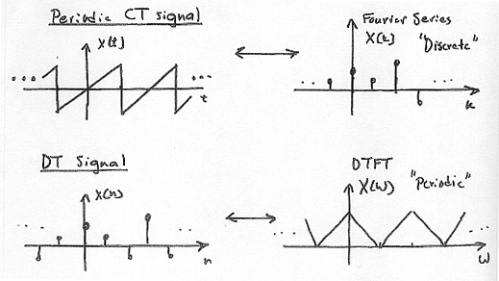 Periodic CT signal
Fourier Series
X(t)
X[k]
"Discrete"
...
...
...
...
t
k
DT Signal
DTFT
X(n)
X(ω)
"Periodic"
...
...
...
...
n
ω